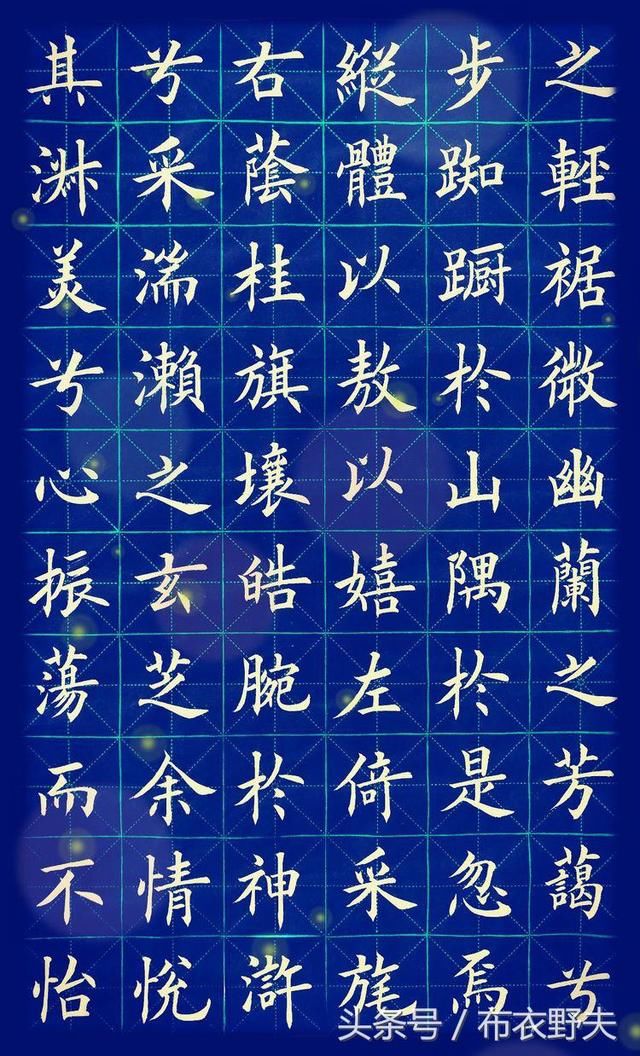 之輕裾微幽蘭之芳藹兮
步踟蹰於山隅於是忽焉
縱體以敖以嬉左倚采旄
右蔭桂旗壤皓腕於神滸
兮采湍瀨之玄芝余情悅
其淑美兮心振蕩而不怡
头条号 / 布衣野夫